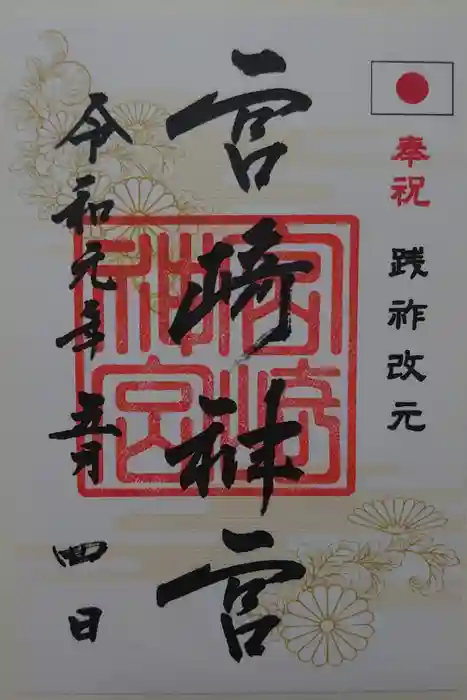 奉祝 践祚改元
宮崎神宮
宮崎神宮
令和元年 五月 四日